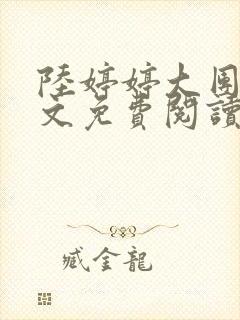 陸婷婷大團
文免費閱讀
臧金龍